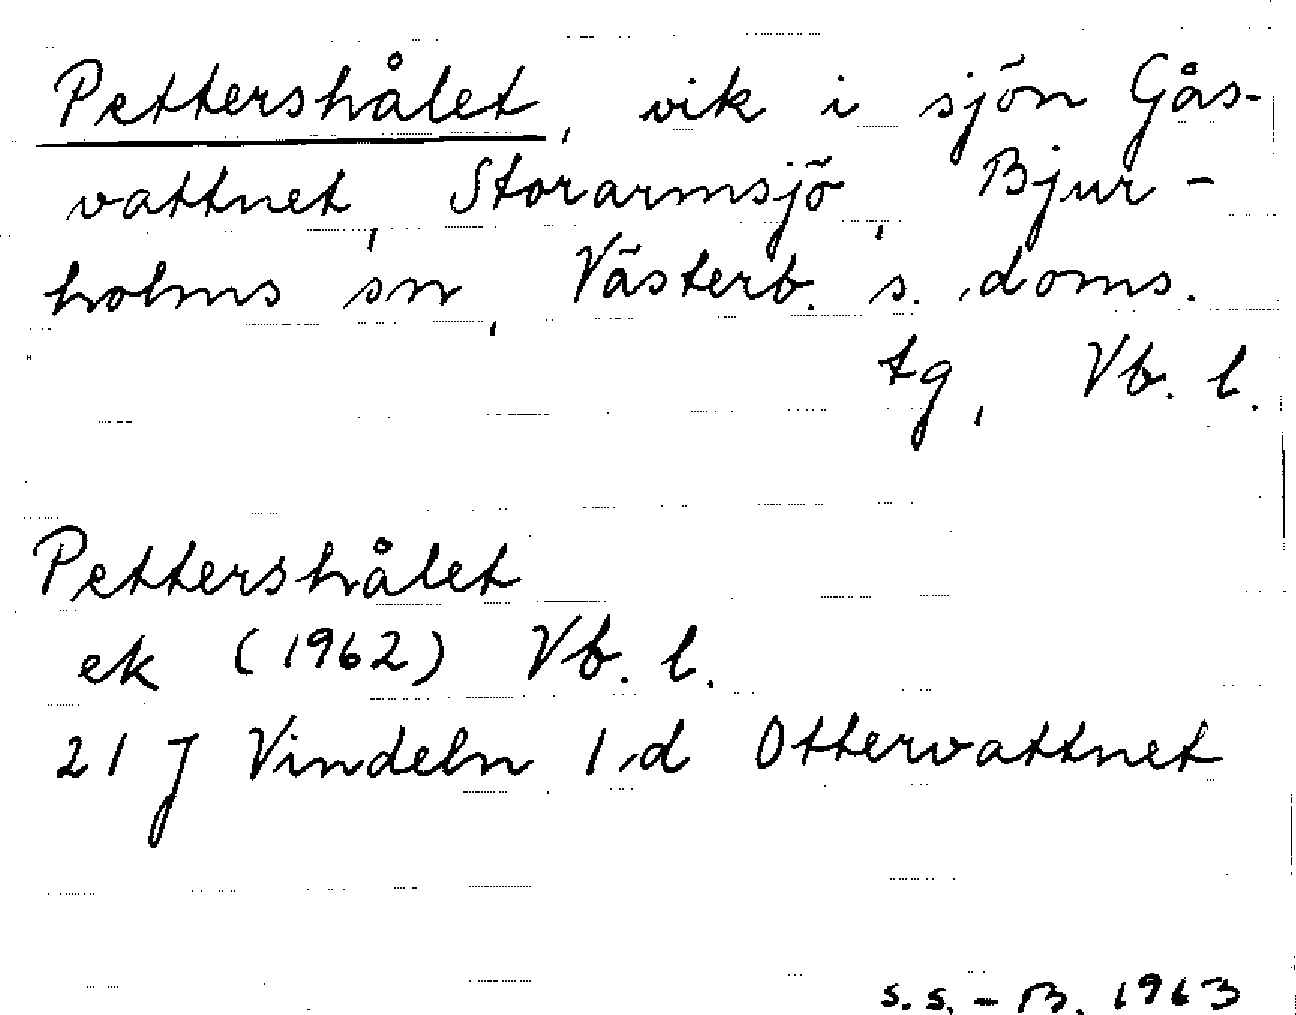 Pettershålet, vik i sjön Gås-
vattnet, Storarmsjö, Bjur-
holms sn, Västerb. s. doms.
tg, Vb. l.
Pettershålet
ek (1962) Vb. l.
21 J Vindeln 1 d Ottervattnet
s.s. - B. 1963